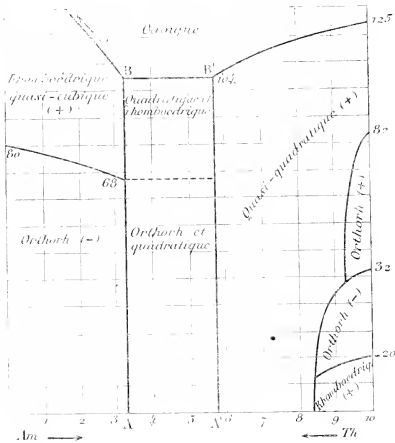 Cubique
125
B
B'
104
quasi-cubique
(+)
Quadratique et
rhomboedrique
Quasi-quadratique (+)
82
68
Orthorh (+)
Orthorh (-)
Orthorh et
quadratique
32
Orthorh (-)
-20
Rhomboedriq
(+)
1 2 3 A 4 5 A' 6 7 8 9 10
Am
Th